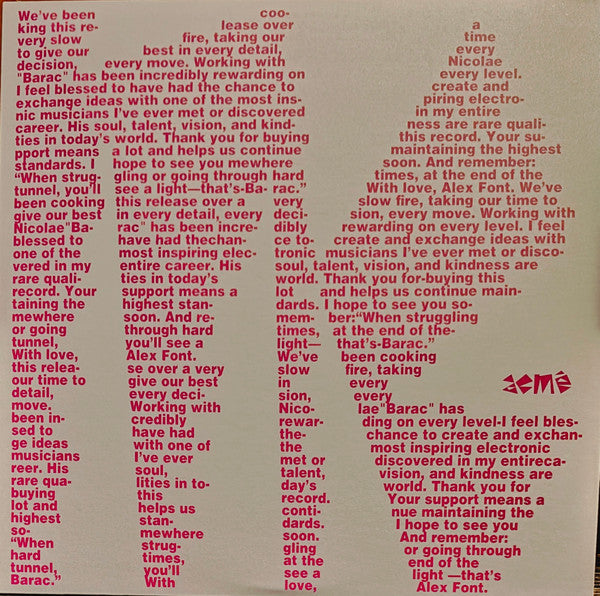 We've been coo-
king this re- lease over a
very slow fire, taking our time
to give our best in every detail, every
decision, every move. Working with Nicolae
"Barac" has been incredibly rewarding on every level.
I feel blessed to have had the chance to create and
exchange ideas with one of the most ins- piring electro-
nic musicians I've ever met or discovered in my entire
career. His soul, talent, vision, and kind- ness are rare quali-
ties in today's world. Thank you for buying this record. Your su-
pport means a lot and helps us continue maintaining the highest
standards. I hope to see you mewhere soon. And remember:
"When strug- gling or going through hard times, at the end of the
tunnel, you'll see a light—that's-Ba- rac." With love, Alex Font. We've
been cooking this release over a very slow fire, taking our time to
give our best in every detail, every deci- sion, every move. Working with
Nicolae"Ba- rac" has been incre- dibly rewarding on every level. I feel
blessed to have had thechan- ce to- create and exchange ideas with
one of the most inspiring elec- tronic musicians I've ever met or disco-
vered in my entire career. His soul, talent, vision, and kindness are
rare quali- ties in today's world. Thank you for-buying this
record. Your support means a lot and helps us continue main-
taining the highest stan- dards. I hope to see you so-
mewhere soon. And re- mem- ber:"When struggling
or going through hard times, at the end of the-
tunnel, you'll see a light— that's-Barac."
With love, Alex Font. We've been cooking
this relea- se over a very slow fire, taking
our time to give our best in every
detail, every deci- sion, every
move. Working with Nico- lae"Barac" has
been in- credibly rewar- ding on every level-I feel bles-
sed to have had the- chance to create and exchan-
ge ideas with one of the most inspiring electronic
musicians I've ever met or discovered in my entireca-
reer. His soul, talent, vision, and kindness are
rare qua- lities in to- day's world. Thank you for
buying this record. Your support means a
lot and helps us conti- nue maintaining the
highest stan- dards. I hope to see you
so- mewhere soon. And remember:
"When strug- gling or going through
hard times, at the end of the
tunnel, you'll see a light —that's
Barac." With love, Alex Font.
acmé